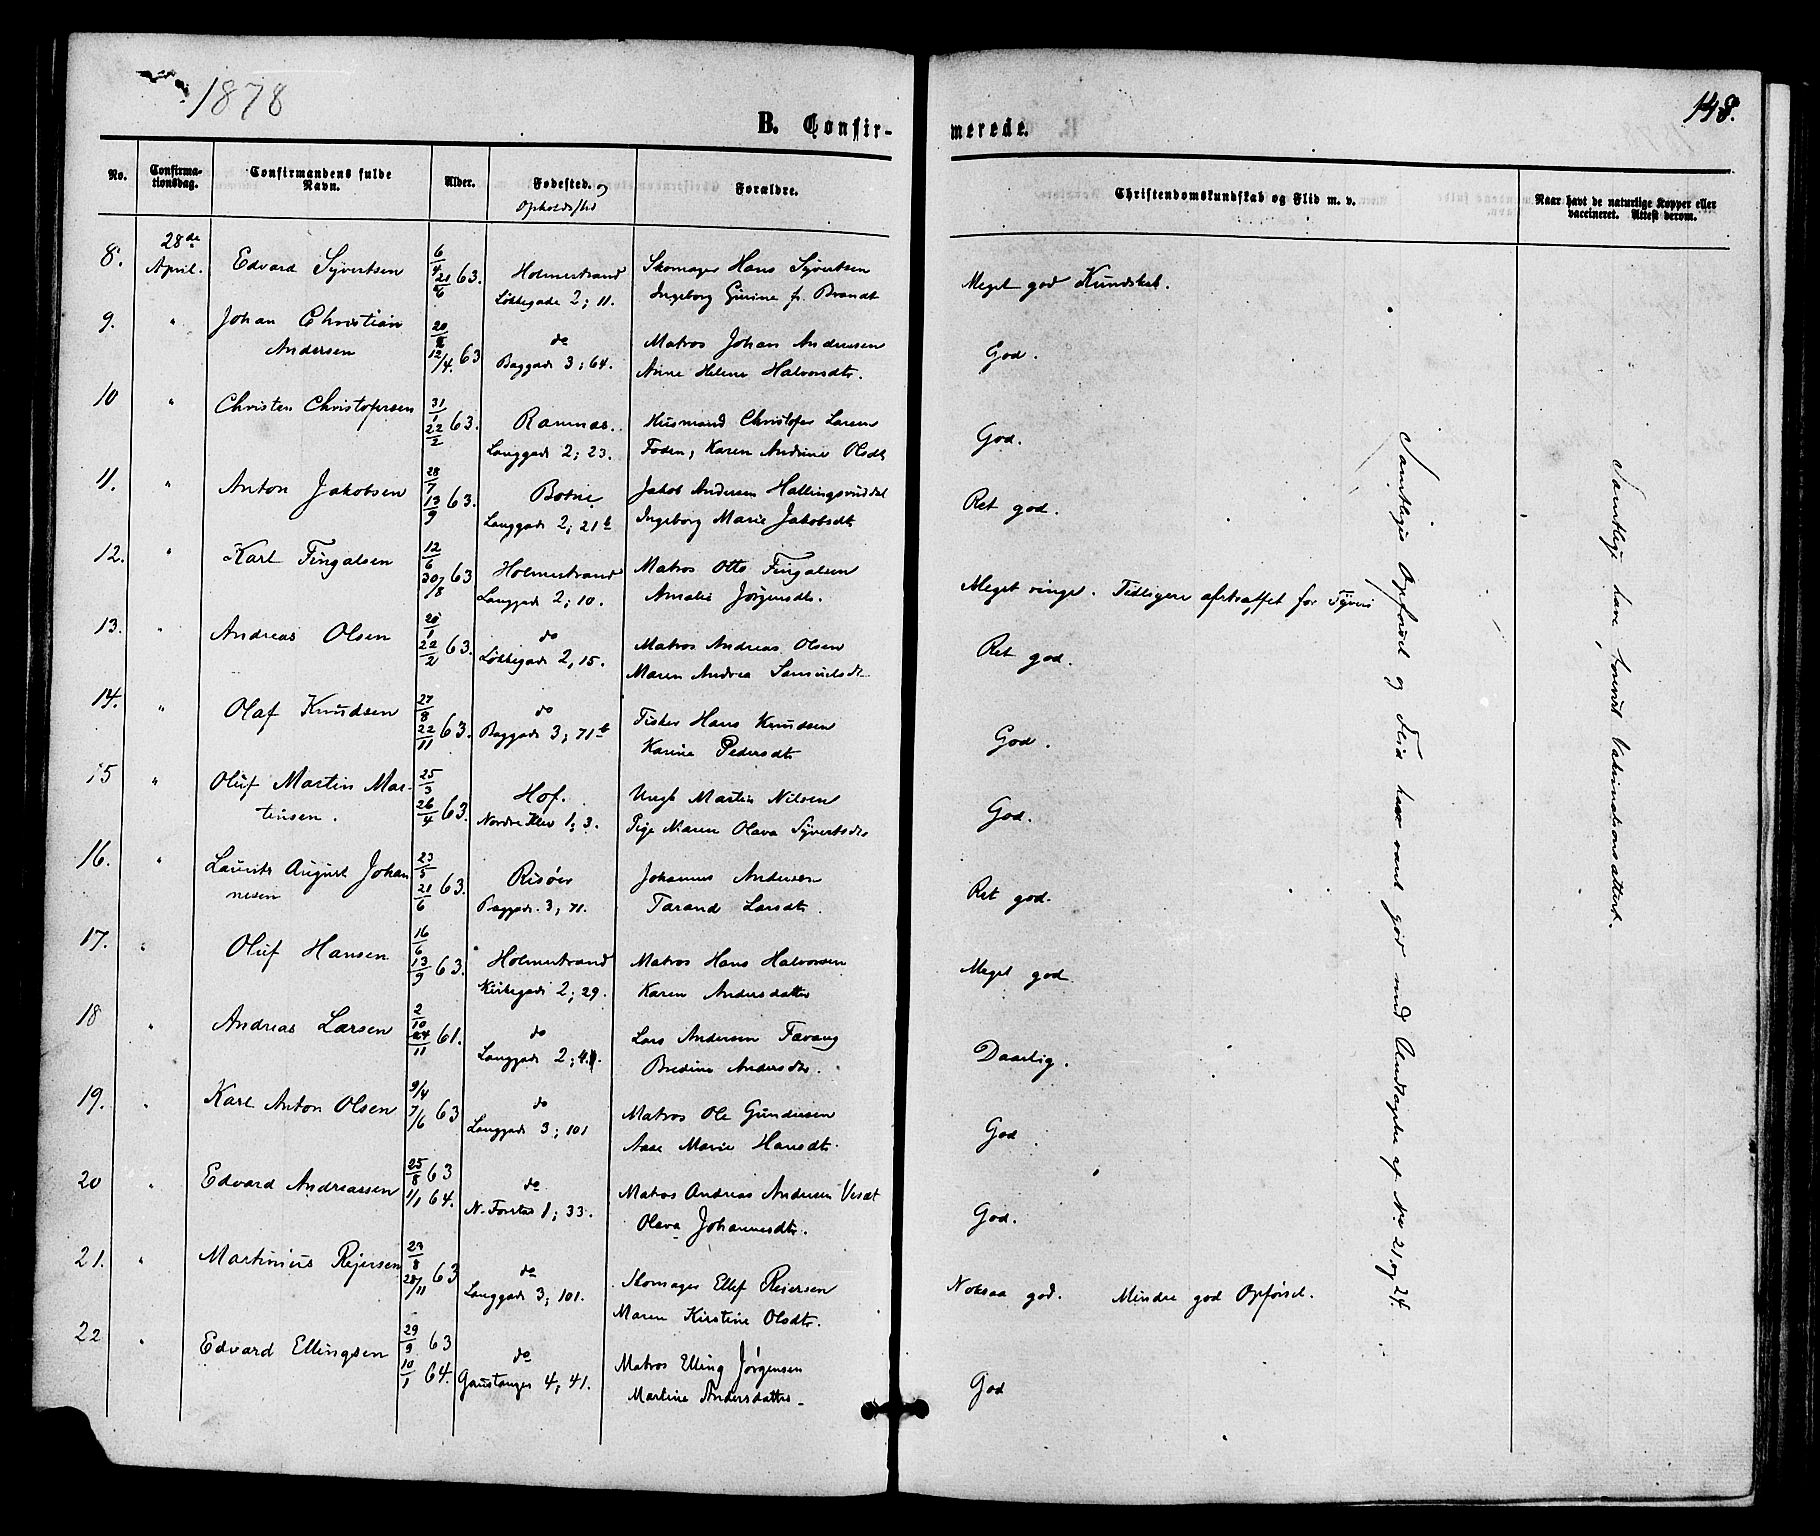 1878
148.
B. Confirmerede.
No. Confirmationsdag. Confirmandens fulde Navn. Alder. Fødested. Opholdssted Forældre. Christendomskundskab og Flid m. v. Naar havt de naturlige Kopper eller vaccineret. Attest derom.
8. 28de April. Edvard Syvertsen 6/4 21/6 63. Holmestrand Løkkegade 2; 11. Skomager Hans Syvertsen Ingeborg Gurine f. Brandt Meget god Kundskab.
9. " Johan Christian Andersen 20/2 12/4 63 do Baggade 3; 64. Matros Johan Andersen Anne Helene Halvorsdtr. God.
10 " Christen Christofersen 31/1 22/2 63. Ramnæs. Langgade 2; 23. Husmand Christofer Larsen Foden, Karen Andrine Olsdtr God.
11. " Anton Jakobsen 28/7 13/9 63. Botne Langgade 2; 21b Jakob Andersen Hallingsruddal Ingeborg Marie Jakobsdtr Ret god.
12. " Karl Fingalsen 12/6 30/8 63 Holmestrand Langgade 2; 10. Matros Otto Fingalsen Amalie Jørgensdtr. Meget ringe. Tidligere afstraffet for Tyveri
13. " Andreas Olsen 20/1 22/2 63. do Løkkegade 2, 15. Matros Andreas Olsen Maren Andrea Samuelsdtr Ret god.
14. " Olaf Knudsen 27/8 22/11 63. do Baggade 3; 71b Fisker Hans Knudsen Karine Pedersdtr God.
15 " Oluf Martin Martinsen. 25/3 26/4 63. Hof. Nordre Klev 1; 3. Ungk Martin Nilsen Pige Maren Olava Syvertsdtr God.
16. " Laurits August Johannesen 23/3 21/6 63. Risøer Baggade. 3; 71. Johannes Andersen Tarand Larsdtr. Ret god.
17. " Oluf Hansen 16/6 13/9 63. Holmestrand Kirkegade 2; 29. Matros Hans Halvorsen Karen Andersdatter Meget god
18 " Andreas Larsen 2/10 24/11 61. do Langgade 2; Lars Andersen Favang Bredine Andersdtr. Daarlig.
19. " Karl Anton Olsen 9/4 7/6 63 do Langgade 3; 101 Matros Ole Gundersen Aase Marie Hansdtr. God
20 " Edvard Andreassen 25/8 63 1/1 64. do N. Forstad 1; 33. Matros Andreas Andersen Olava Johannesdtr. God.
21. " Martinius Rejersen 23/8 28/11 63 do Langgade 3; 101. Skomager Ellef Reiersen Maren Kirstine Olsdtr. Noksaa god. Mindre god Opførsel.
22 " Edvard Ellingsen 29/9 63 10/1 64. do Gaustanger 4; 41. Matros Elling Jørgensen Martine Andersdatter God
Samtliges Opførsel og Flid har været god med Undtagelse af No 21 og 24.
Samtlige have forevist Vakcinationsattest.